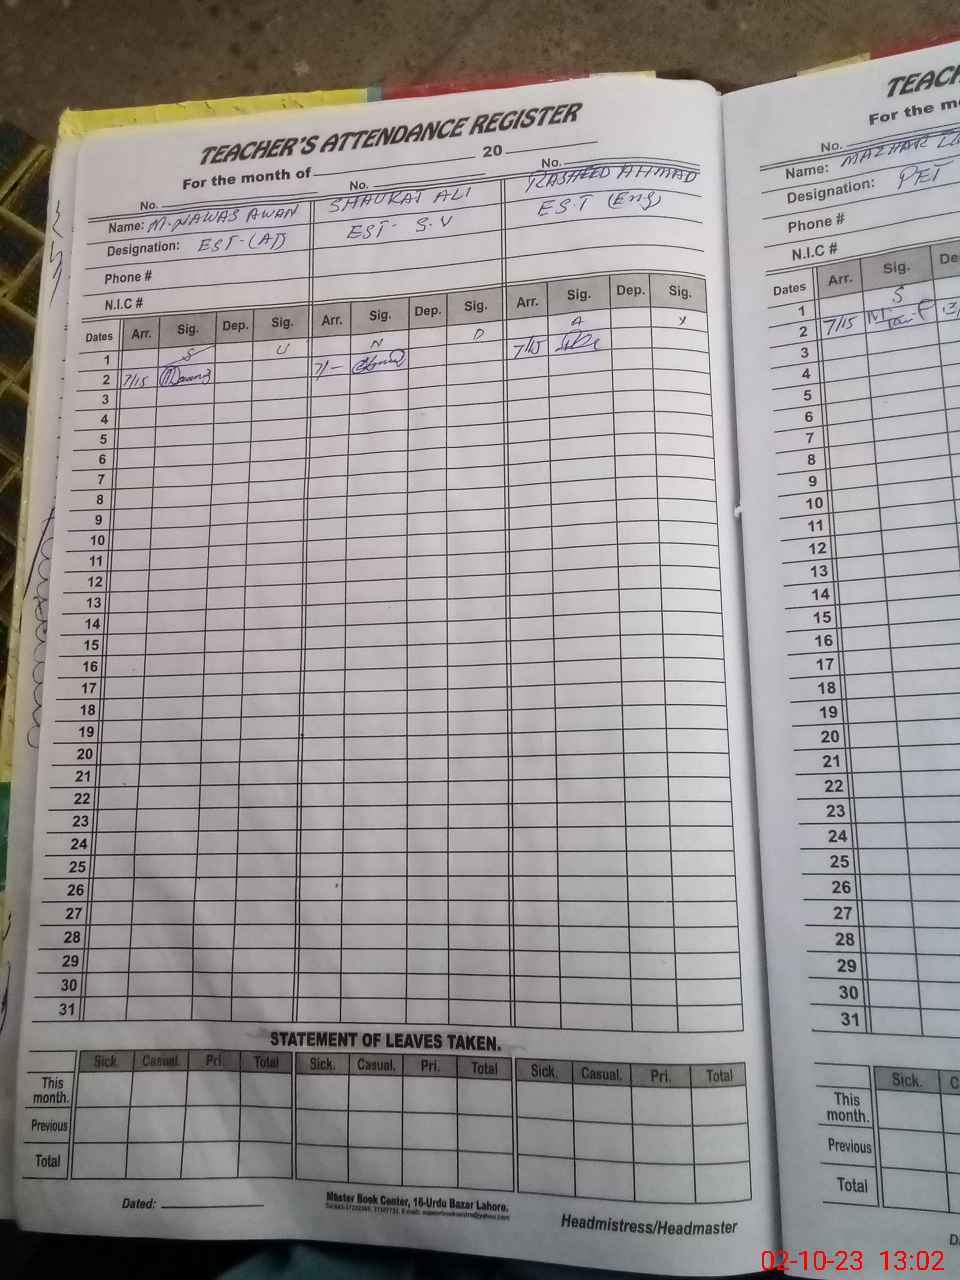 TEACHER'S ATTENDANCE REGISTER
For the month of 20
No. No. No.
Name: M. NAWAS AWAN SHAUKAT ALI RASHEED AHMAD
Designation: EST-(AT) EST- S.V EST (Eng)
Phone #
N.I.C #
Dates Arr. Sig. Dep. Sig. Arr. Sig. Dep. Sig. Arr. Sig. Dep. Sig.
1 S U N D A Y
2 7/15 7/- 7/15
3
4
5
6
7
8
9
10
11
12
13
14
15
16
17
18
19
20
21
22
23
24
25
26
27
28
29
30
31
STATEMENT OF LEAVES TAKEN.
Sick. Casual. Pri. Total Sick. Casual. Pri. Total Sick. Casual. Pri. Total
This month.
Previous
Total
Dated:
Master Book Center, 16-Urdu Bazar Lahore.
Headmistress/Headmaster
TEACH
For the mo
No.
Name: MAZHAR
Designation: PET
Phone #
N.I.C #
Dates Arr. Sig. De
1 S
2 7/15
3
4
5
6
7
8
9
10
11
12
13
14
15
16
17
18
19
20
21
22
23
24
25
26
27
28
29
30
31
Sick. C
This month.
Previous
Total
D
02-10-23 13:02